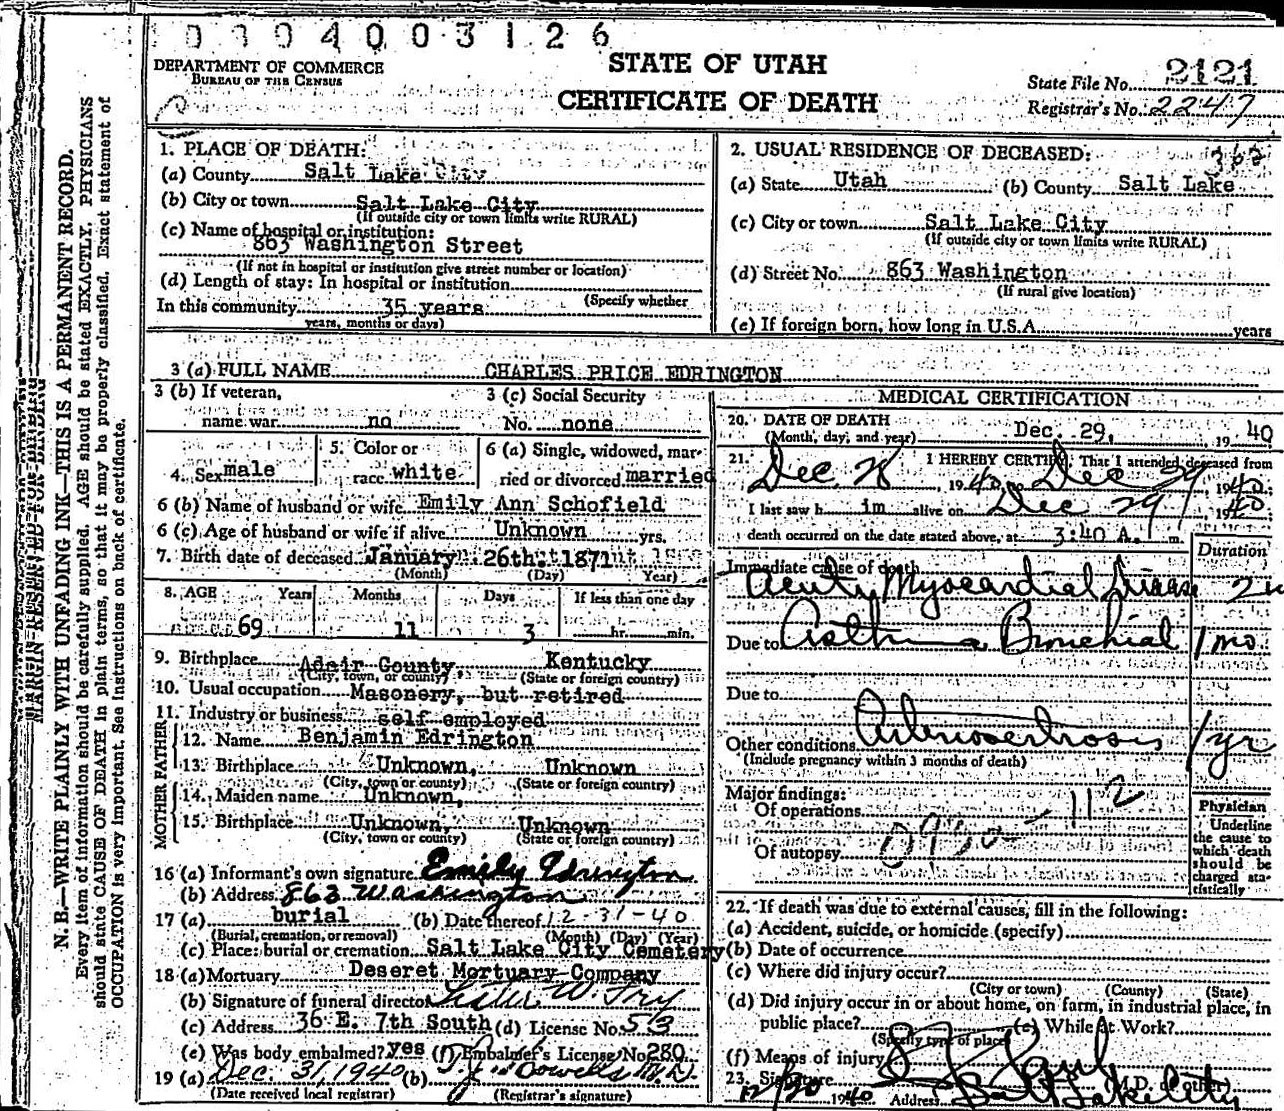 0 0 0 4 0 0 3 1 2 6
DEPARTMENT OF COMMERCE
BUREAU OF THE CENSUS
STATE OF UTAH
CERTIFICATE OF DEATH
State File No. 2121
Registrar's No. 2247
MARGIN RESERVED FOR BINDING
N. B.—WRITE PLAINLY WITH UNFADING INK—THIS IS A PERMANENT RECORD.
Every item of information should be carefully supplied. AGE should be stated EXACTLY. PHYSICIANS
should state CAUSE OF DEATH in plain terms, so that it may be properly classified. Exact statement of
OCCUPATION is very important. See instructions on back of certificate.
1. PLACE OF DEATH:
(a) County Salt Lake City
(b) City or town Salt Lake City
(If outside city or town limits write RURAL)
(c) Name of hospital or institution:
863 Washington Street
(If not in hospital or institution give street number or location)
(d) Length of stay: In hospital or institution
(Specify whether
In this community 35 years
years, months or days)
2. USUAL RESIDENCE OF DECEASED: 362
(a) State Utah (b) County Salt Lake
(c) City or town Salt Lake City
(If outside city or town limits write RURAL)
(d) Street No. 863 Washington
(If rural give location)
(e) If foreign born, how long in U.S.A. years
3 (a) FULL NAME CHARLES PRICE EDRINGTON
3 (b) If veteran, 3 (c) Social Security
name war no No. none
4. Sex male 5. Color or race white 6 (a) Single, widowed, married or divorced married
6 (b) Name of husband or wife Emily Ann Schofield
6 (c) Age of husband or wife if alive Unknown yrs.
7. Birth date of deceased January 26th 1871
(Month) (Day) Year)
8. AGE Years Months Days If less than one day
69 11 3 hr. min.
9. Birthplace Adair County Kentucky
(City, town, or county) (State or foreign country)
10. Usual occupation Masonery, but retired
11. Industry or business self employed
FATHER
12. Name Benjamin Edrington
13. Birthplace Unknown, Unknown
(City, town or county) (State or foreign country)
MOTHER
14. Maiden name Unknown,
15. Birthplace Unknown, Unknown
(City, town or county) (State or foreign country)
16 (a) Informant's own signature Emily Edrington
(b) Address 863 Washington
17 (a) burial (b) Date thereof 12-31-40
(Burial, cremation, or removal) (Month) (Day) (Year)
(c) Place: burial or cremation Salt Lake City Cemetery
18 (a) Mortuary Deseret Mortuary Company
(b) Signature of funeral director
(c) Address 36 E. 7th South (d) License No. 53
(e) Was body embalmed? yes (f) Embalmer's License No. 280
19 (a) Dec. 31, 1940 (b) M.D.
(Date received local registrar) (Registrar's signature)
MEDICAL CERTIFICATION
20. DATE OF DEATH
(Month, day, and year) Dec. 29, 19 40
21. I HEREBY CERTIFY, That I attended deceased from
Dec 28, 1940 to Dec 29 1940
I last saw h im alive on Dec 29, 1940
death occurred on the date stated above, at 3:40 A. m.
Duration
Immediate cause of death
Acute Myocardial Disease
Due to Asthma Bronchial 1 mo
Due to
Other conditions Arteriosclerosis 1 yr
(Include pregnancy within 3 months of death)
Major findings:
Of operations 112
Of autopsy
Physician
Underline
the cause to
which death
should be
charged sta-
tistically
22. If death was due to external causes, fill in the following:
(a) Accident, suicide, or homicide (specify)
(b) Date of occurrence
(c) Where did injury occur?
(City or town) (County) (State)
(d) Did injury occur in or about home, on farm, in industrial place, in
public place? (e) While at Work?
(Specify type of place)
(f) Means of injury
23. Signature (M.D. or other)
12/30 1940 Address Salt Lake City